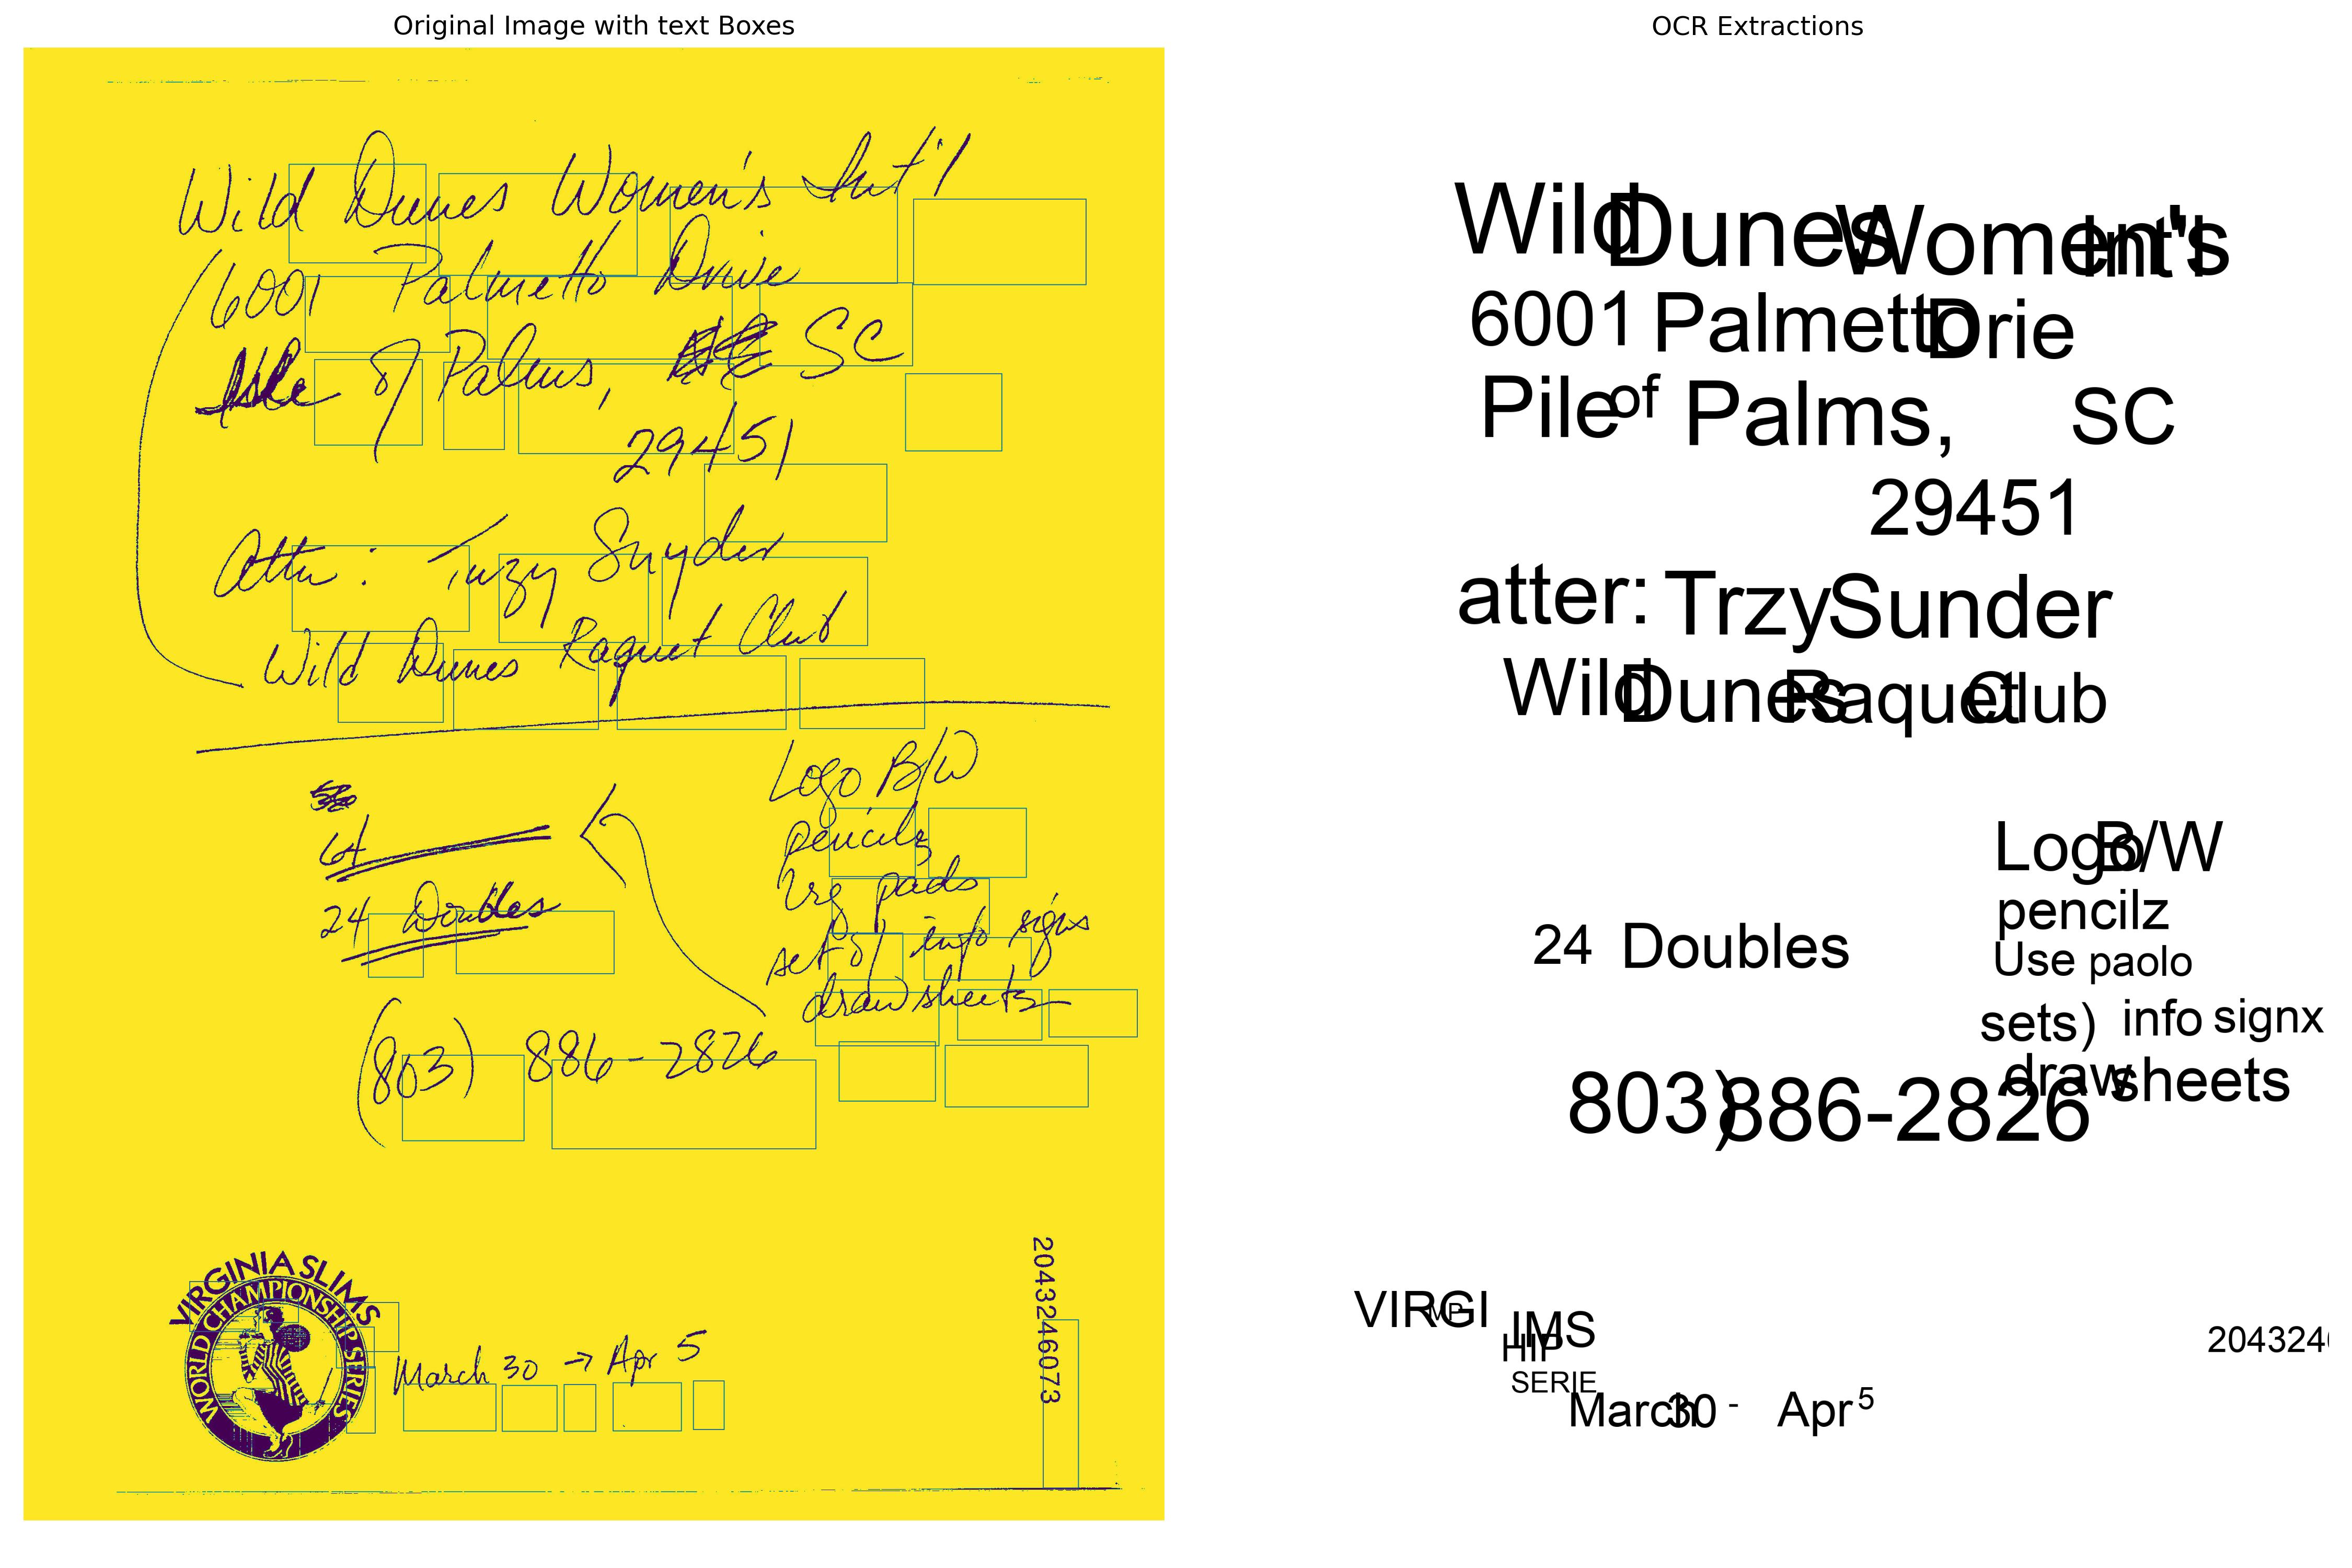 Original Image with text Boxes
Wild Dunes Women's Int'l
6001 Palmetto Drive
Isle of Palms, SC
29451
Attn: Snyder
Wild Dunes Raquet Club
Logo B/W
pencils
64
pads
24 Doubles
set of info signs
draw sheets
(803) 886-2826
2043246073
VIRGINIA SLIMS
WORLD CHAMPIONSHIP SERIES
March 30 → Apr 5
OCR Extractions
Wild Dunes Women's Int'l
6001 Palmetto Drie
Pile of Palms, SC
29451
atter: Trzy Sunder
Wild Dunes Raquet Club
Logo B/W
pencilz
24 Doubles
Use paolo
sets) info signx
draw sheets
803) 886-2826
VIRGI
MP
IMS
HIP
SERIE
204324
March 30 - Apr 5